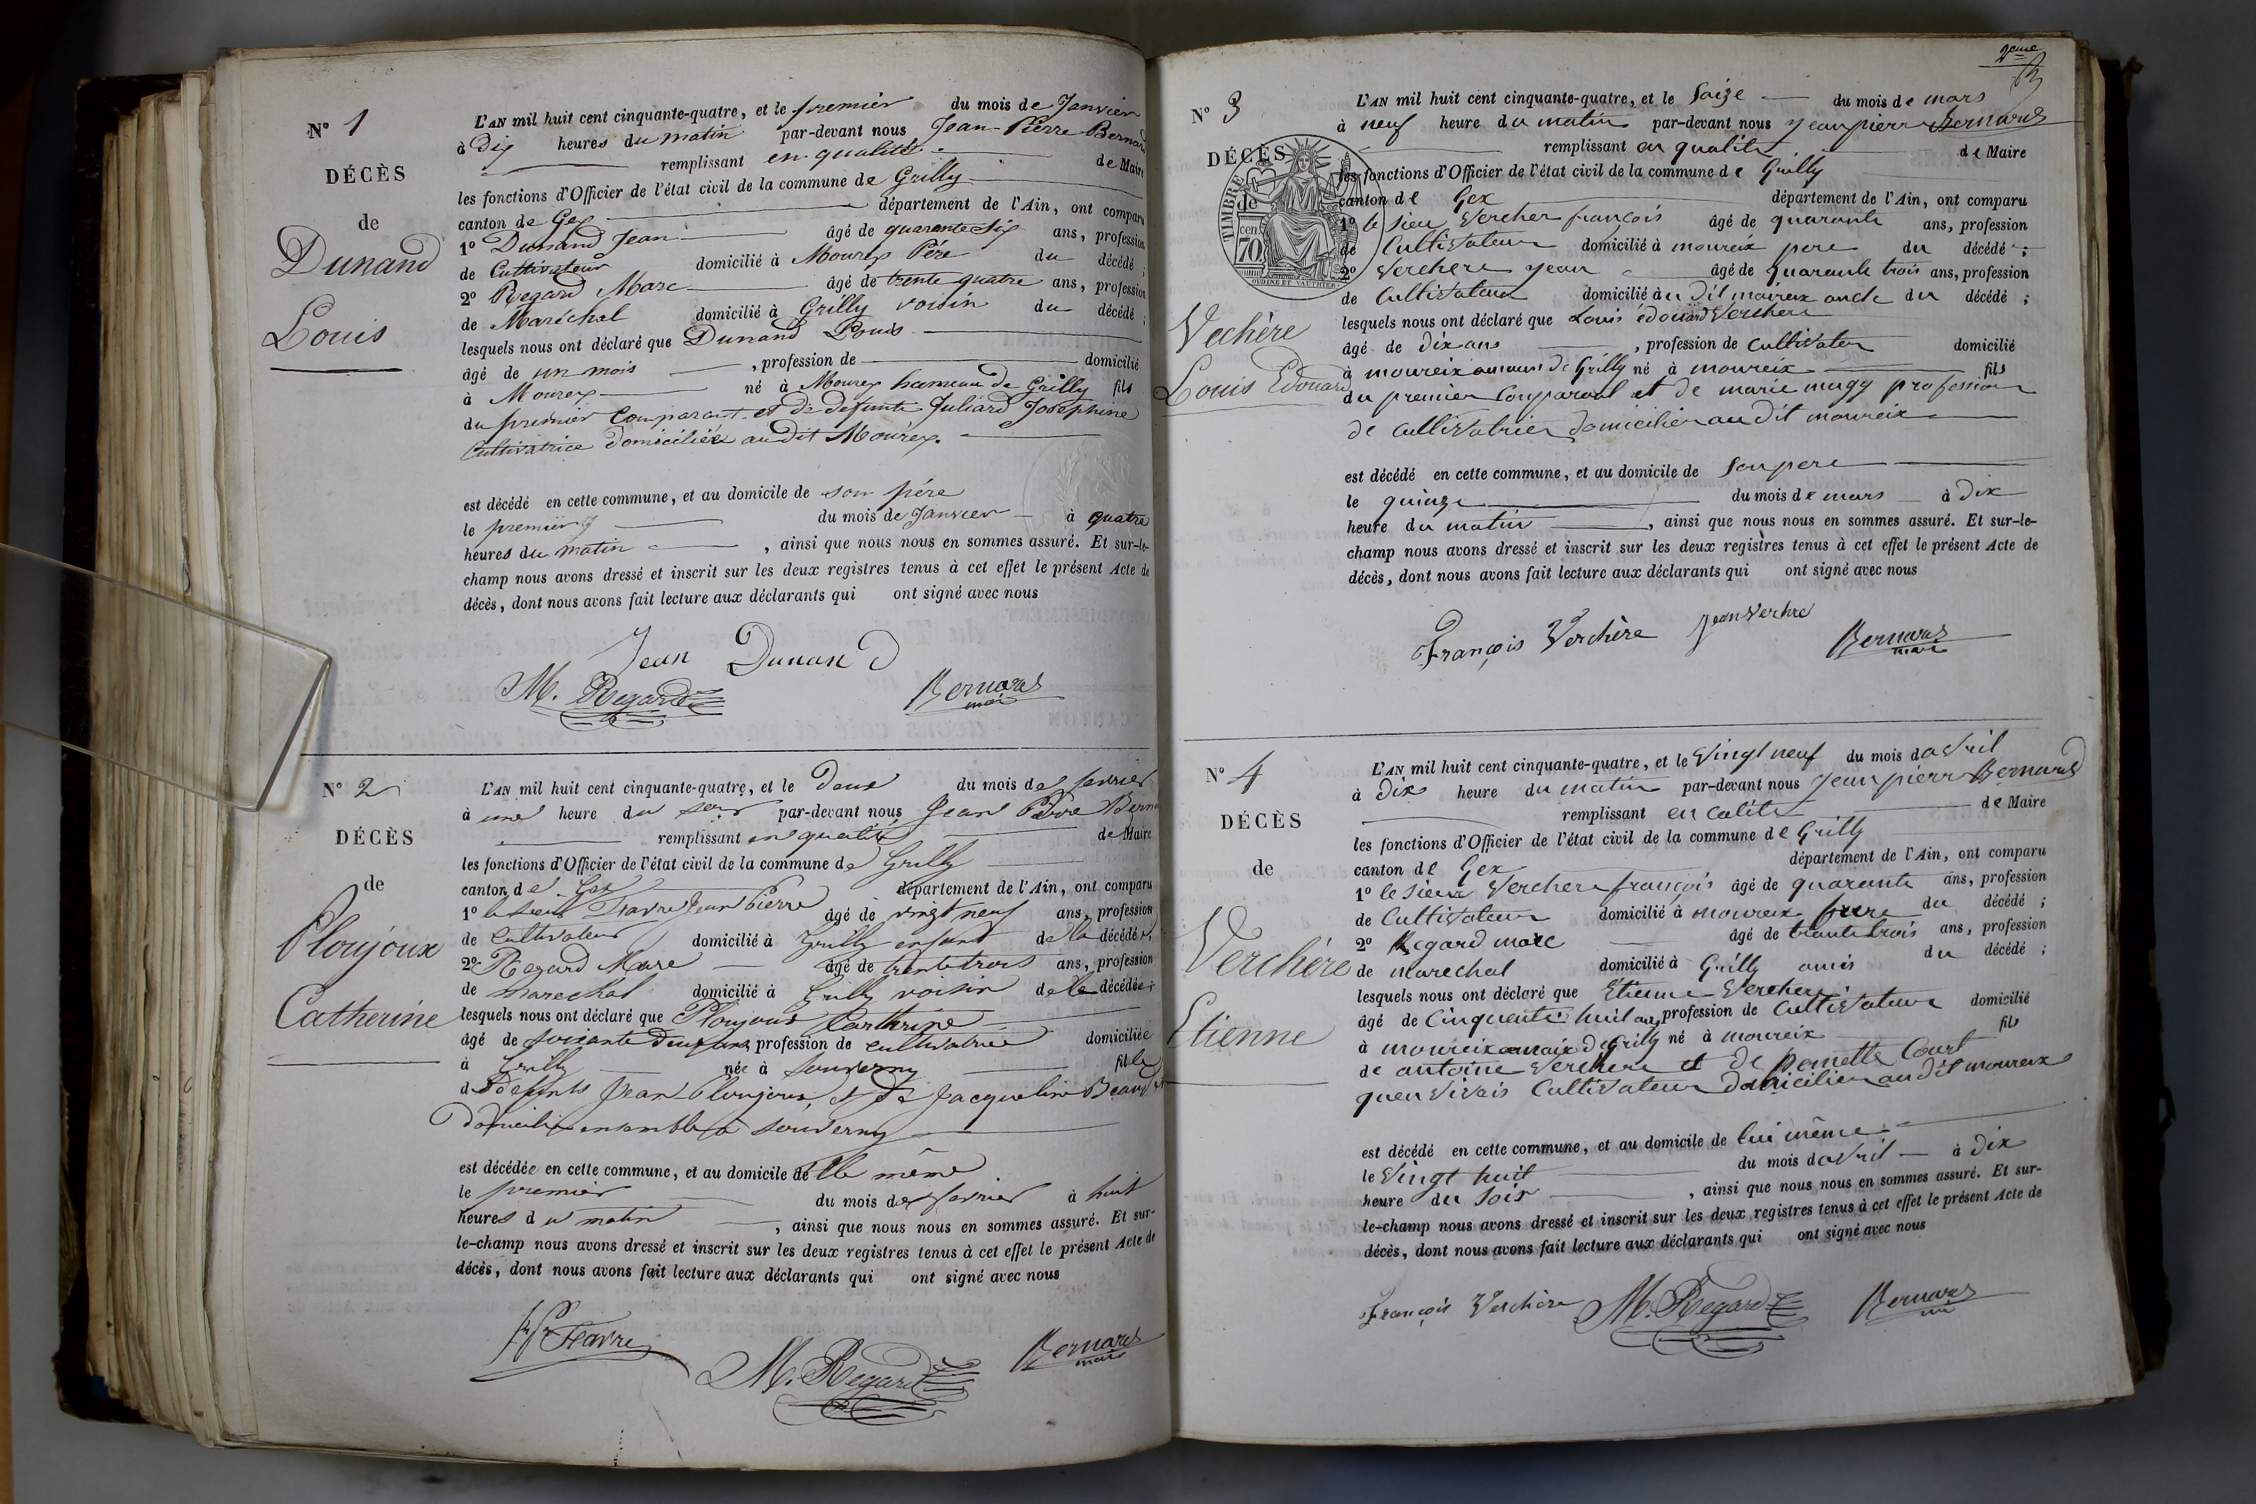 N° 1
DÉCÈS
de
Dunand
Louis
L'AN mil huit cent cinquante-quatre, et le premier du mois de Janvier
à dix heures du matin par-devant nous Jean-Pierre Bernard
remplissant en qualité de Maire
les fonctions d'Officier de l'état civil de la commune de Grilly
canton de Gex département de l'Ain, ont comparu
1° Dunand Jean âgé de quarante six ans, profession
de Cultivateur domicilié à Mourex Père du décédé ;
2° Regard Marc âgé de trente quatre ans, profession
de Maréchal domicilié à Grilly voisin du décédé ;
lesquels nous ont déclaré que Dunand Louis
âgé de un mois , profession de domicilié
à Mourex né à Mourex hameau de Grilly fils
du premier Comparant et de defunte Juliard Joséphine
Cultivatrice domiciliée au dit Mourex.
est décédé en cette commune, et au domicile de son père
le premier du mois de Janvier à quatre
heures du matin , ainsi que nous nous en sommes assuré. Et sur-le-
champ nous avons dressé et inscrit sur les deux registres tenus à cet effet le présent Acte de
décès, dont nous avons fait lecture aux déclarants qui ont signé avec nous
Jean Dunand
M. Regard Bernard
N° 2
DÉCÈS
de
Ploujoux
Catherine
L'AN mil huit cent cinquante-quatre, et le deux du mois de fevrier
à une heure du soir par-devant nous Jean Pierre Bern
remplissant en qualité de Maire
les fonctions d'Officier de l'état civil de la commune de Grilly
canton de Gex département de l'Ain, ont comparu
1° le sieur Favre Jean Pierre âgé de vingt neuf ans, profession
de Cultivateur domicilié à Grilly enfant de la décédée,
2° Regard Marc âgé de trente trois ans, profession
de marechal domicilié à Grilly voisin de la décédée ;
lesquels nous ont déclaré que Ploujoux Catherine
âgé de soixante deux ans, profession de cultivatrice domiciliée
à Grilly née à Sauverny fille
de defunts Jean Ploujoux, et de Jacqueline
Domicilié ensemble à Sauverny
est décédée en cette commune, et au domicile de Elle même
le premier du mois de fevrier à huit
heures du matin , ainsi que nous nous en sommes assuré. Et sur-
le-champ nous avons dressé et inscrit sur les deux registres tenus à cet effet le présent Acte de
décès, dont nous avons fait lecture aux déclarants qui ont signé avec nous
Favre
M. Regard Bernard
maire
2ème
N° 3
DÉCÈS
de
TIMBRE
70 cen
OUDINE ET VAUTHIER
Vechère
Louis Edouard
L'AN mil huit cent cinquante-quatre, et le Saize du mois de mars
à neuf heure du matin par-devant nous Jean pierre Bernard
remplissant en qualite de Maire
les fonctions d'Officier de l'état civil de la commune de Grilly
canton de Gex département de l'Ain, ont comparu
1° le sieur Vercher françois âgé de quarante ans, profession
de Cultivateur domicilié à moureix pere du décédé ;
2° Verchere Jean âgé de quarante trois ans, profession
de Cultivateur domicilié au dit moireix oncle du décédé ;
lesquels nous ont déclaré que Louis édouard Verchere
âgé de dix ans , profession de cultivateur domicilié
à moureix de Grilly né à moureix fils
du premier Comparant et de marie mugy profession
de Cultivatrice domicilier au dit moureix
est décédé en cette commune, et au domicile de Son pere
le quinze du mois de mars à dix
heure du matin , ainsi que nous nous en sommes assuré. Et sur-le-
champ nous avons dressé et inscrit sur les deux registres tenus à cet effet le présent Acte de
décès, dont nous avons fait lecture aux déclarants qui ont signé avec nous
François Verchère Jean Verchre Bernard
maire
N° 4
DÉCÈS
de
Verchère
Etienne
L'AN mil huit cent cinquante-quatre, et le Vingt neuf du mois d avril
à dix heure du matin par-devant nous Jean pierre Bernard
remplissant en calite de Maire
les fonctions d'Officier de l'état civil de la commune de Grilly
canton de Gex département de l'Ain, ont comparu
1° le sieur Verchere françois âgé de quarante ans, profession
de Cultivateur domicilié à moureix frere du décédé ;
2° Regard marc âgé de trante trois ans, profession
de marechal domicilié à Grilly amis du décédé ;
lesquels nous ont déclaré que Etienne Verchere
âgé de Cinquente huit ans, profession de Cultivateur domicilié
à moureix de Grilly né à moureix fils
de antoine Verchere et de pernette Court
quen Vivais Cultivateur domicilier au dit moureix
est décédé en cette commune, et au domicile de lui même
le Vingt huit du mois d avril à dix
heure du Soir , ainsi que nous nous en sommes assuré. Et sur-
le-champ nous avons dressé et inscrit sur les deux registres tenus à cet effet le présent Acte de
décès, dont nous avons fait lecture aux déclarants qui ont signé avec nous
François Verchère M. Regard Bernard